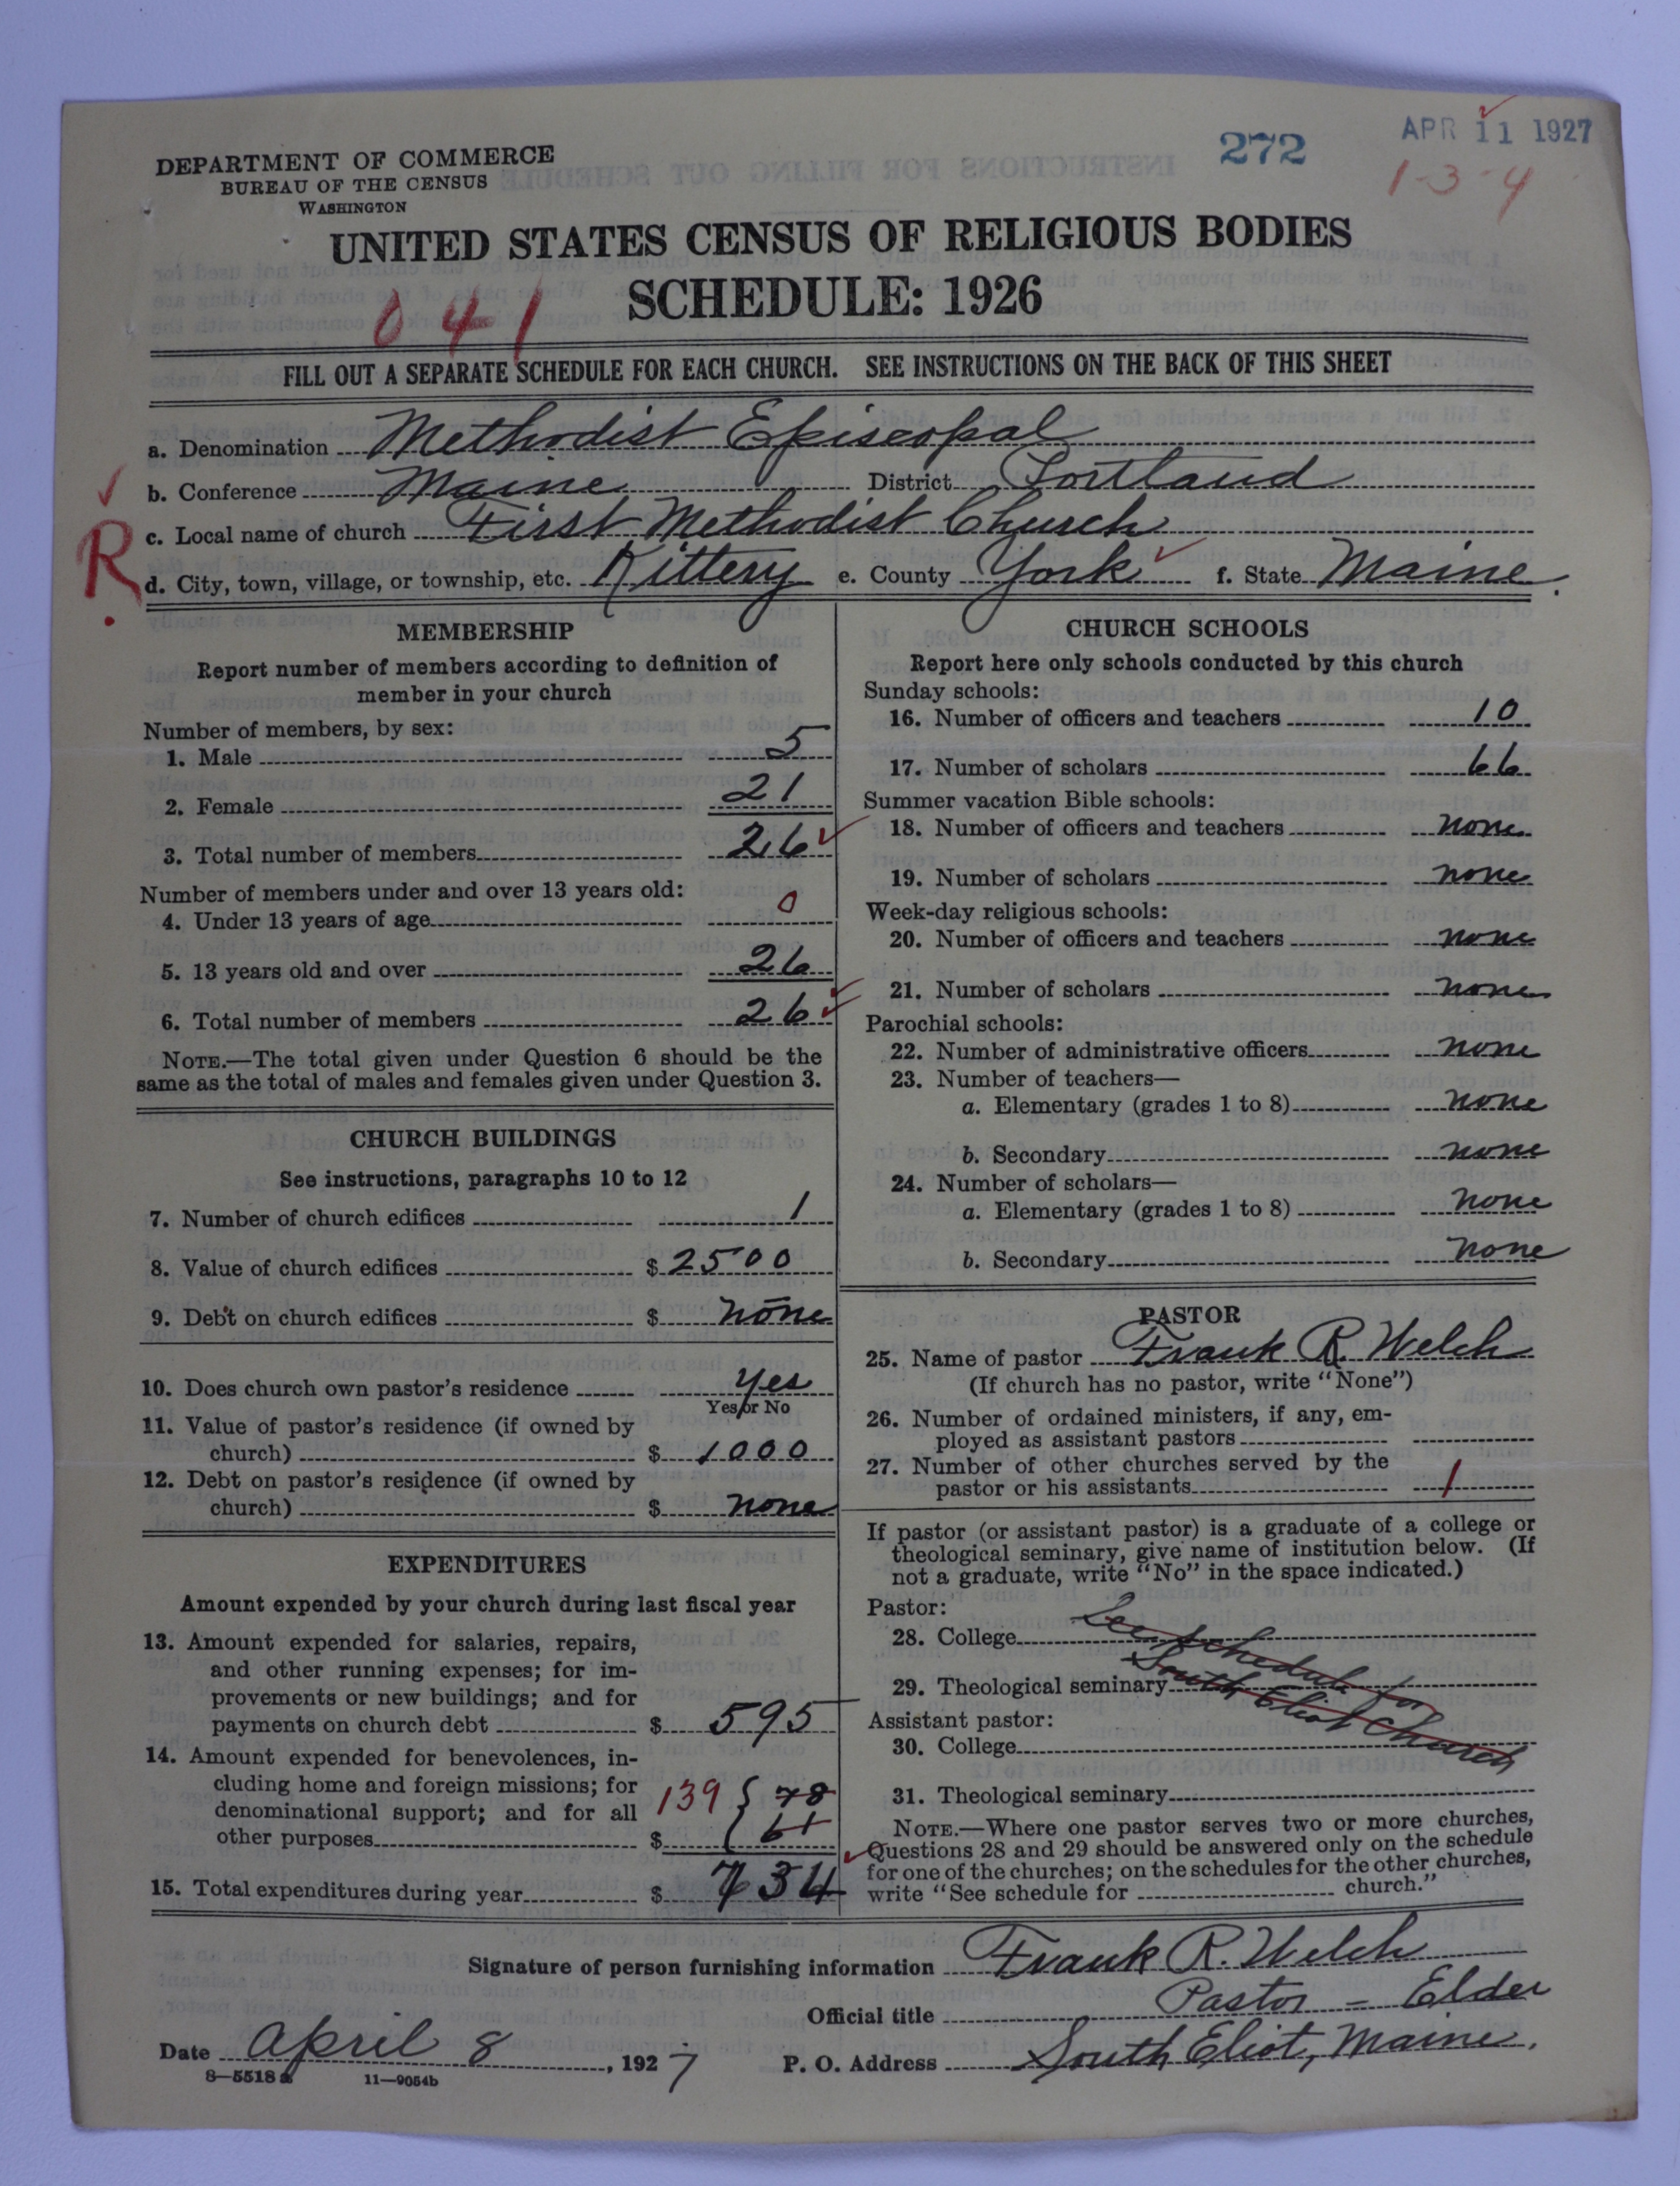 272
APR 11 1927
1-3-4
DEPARTMENT OF COMMERCE
BUREAU OF THE CENSUS
WASHINGTON
UNITED STATES CENSUS OF RELIGIOUS BODIES
SCHEDULE: 1926
041
FILL OUT A SEPARATE SCHEDULE FOR EACH CHURCH. SEE INSTRUCTIONS ON THE BACK OF THIS SHEET
a. Denomination Methodist Episcopal
b. Conference Maine District Portland
c. Local name of church First Methodist Church
R
d. City, town, village, or township, etc. Kittery e. County York f. State Maine.
MEMBERSHIP
Report number of members according to definition of
member in your church
Number of members, by sex:
1. Male 5
2. Female 21
3. Total number of members 26
Number of members under and over 13 years old:
4. Under 13 years of age 0
5. 13 years old and over 26
6. Total number of members 26
NOTE.—The total given under Question 6 should be the
same as the total of males and females given under Question 3.
CHURCH BUILDINGS
See instructions, paragraphs 10 to 12
7. Number of church edifices 1
8. Value of church edifices $ 2500
9. Debt on church edifices $ none
10. Does church own pastor's residence yes
Yes or No
11. Value of pastor's residence (if owned by
church) $ 1000
12. Debt on pastor's residence (if owned by
church) $ none
EXPENDITURES
Amount expended by your church during last fiscal year
13. Amount expended for salaries, repairs,
and other running expenses; for im-
provements or new buildings; and for
payments on church debt $ 595
14. Amount expended for benevolences, in-
cluding home and foreign missions; for 139 { 78
denominational support; and for all
other purposes $ 61
15. Total expenditures during year $ 734
CHURCH SCHOOLS
Report here only schools conducted by this church
Sunday schools:
16. Number of officers and teachers 10
17. Number of scholars 66
Summer vacation Bible schools:
18. Number of officers and teachers none
19. Number of scholars none
Week-day religious schools:
20. Number of officers and teachers none
21. Number of scholars none
Parochial schools:
22. Number of administrative officers none
23. Number of teachers—
a. Elementary (grades 1 to 8) none
b. Secondary none
24. Number of scholars—
a. Elementary (grades 1 to 8) none
b. Secondary none
PASTOR
25. Name of pastor Frank R. Welch
(If church has no pastor, write "None")
26. Number of ordained ministers, if any, em-
ployed as assistant pastors
27. Number of other churches served by the
pastor or his assistants 1
If pastor (or assistant pastor) is a graduate of a college or
theological seminary, give name of institution below. (If
not a graduate, write "No" in the space indicated.)
Pastor:
28. College See schedule for
29. Theological seminary South Eliot Church
Assistant pastor:
30. College
31. Theological seminary
NOTE.—Where one pastor serves two or more churches,
Questions 28 and 29 should be answered only on the schedule
for one of the churches; on the schedules for the other churches,
write "See schedule for church."
Signature of person furnishing information Frank R. Welch
Official title Pastor - Elder
Date April 8, 1927 P. O. Address South Eliot, Maine.
8—5518 a 11—9054b